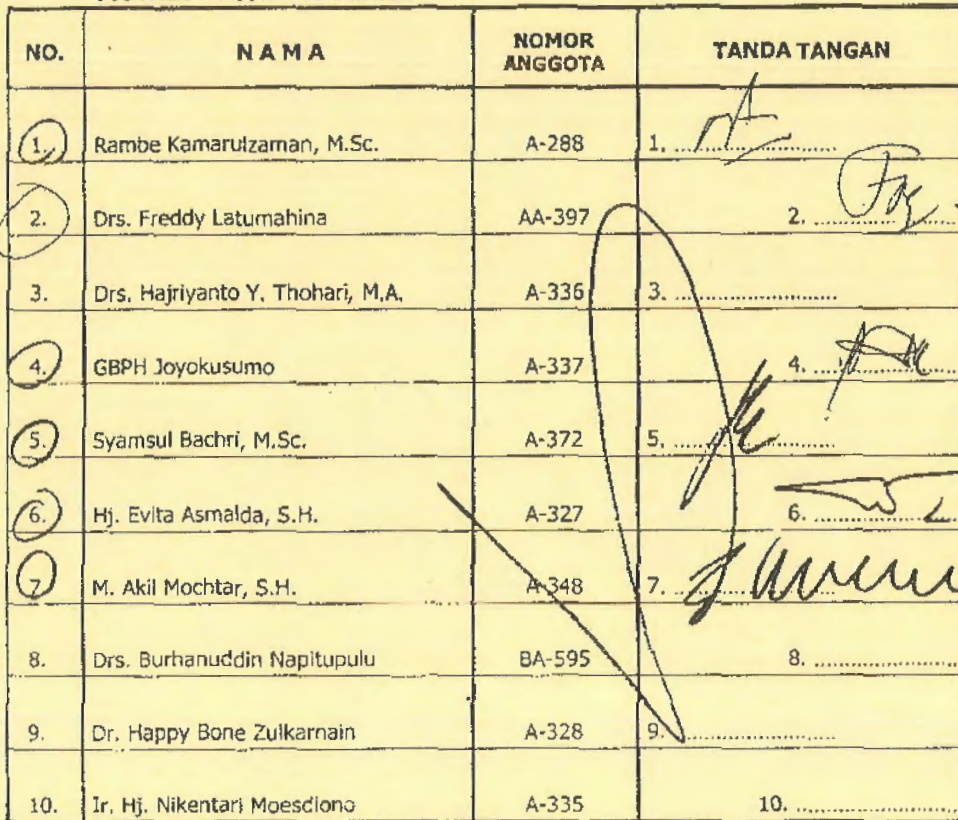 NO. NAMA NOMOR ANGGOTA TANDA TANGAN
1. Rambe Kamarulzaman, M.Sc. A-288 1. ....................
2. Drs. Freddy Latumahina AA-397 2. ....................
3. Drs. Hajriyanto Y. Thohari, M.A. A-336 3. ....................
4. GBPH Joyokusumo A-337 4. ....................
5. Syamsul Bachri, M.Sc. A-372 5. ....................
6. Hj. Evita Asmalda, S.H. A-327 6. ....................
7 M. Akil Mochtar, S.H. A-348 7. ....................
8. Drs. Burhanuddin Napitupulu BA-595 8. ....................
9. Dr. Happy Bone Zulkarnain A-328 9. ....................
10. Ir. Hj. Nikentari Moesdiono A-335 10. ....................